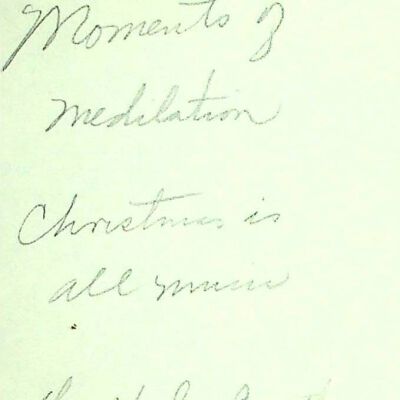 Moments of
Meditation
Christmas is
all music